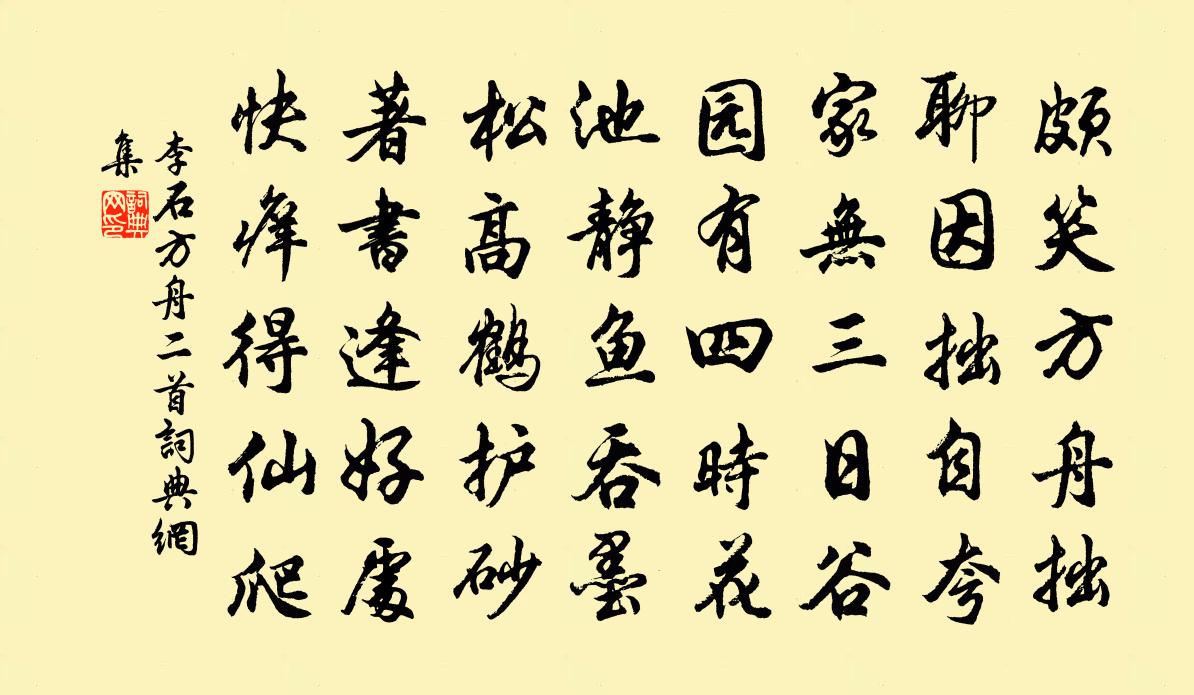 颇笑方舟拙
聊因拙自夸
家無三日谷
园有四時花
池静鱼吞墨
松高鶴护砂
著書逢好處
快痒得仙爬
李石方舟二首詞典網
集
詞典网印